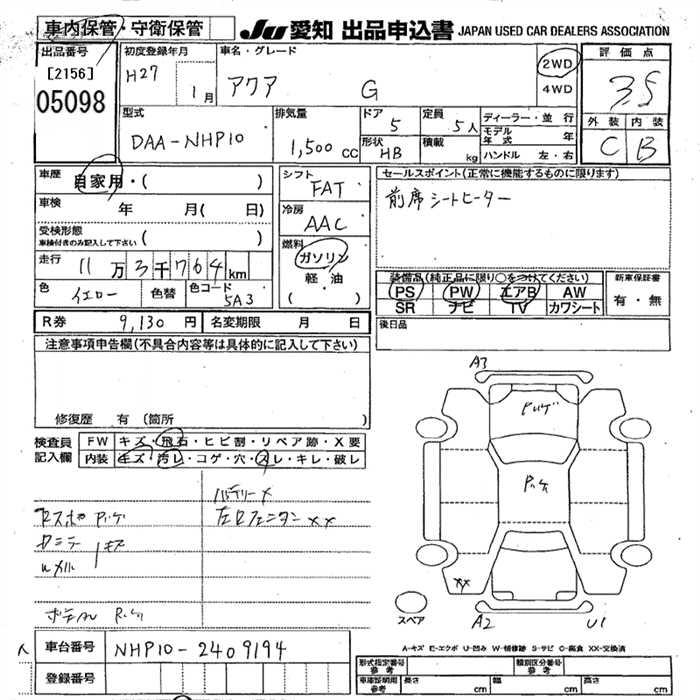 車内保管・守衛保管 JU 愛知 出品申込書 JAPAN USED CAR DEALERS ASSOCIATION
出品番号 初度登録年月 車名・グレード 評価点
[2156] H27 1月 アクア G 2WD 4WD 3.5
05098
型式 排気量 ドア 定員 ディーラー・並行 外装 内装
DAA-NHP10 1,500cc 5 5人 モデル年式 年 C B
形状 HB 積載 kg ハンドル 左・右
車歴 自家用・( ) シフト FAT セールスポイント(正常に機能するものに限ります)
車検 年 月( 日) 冷房 AAC 前席シートヒーター
受検形態 車検付きのみ記入して下さい ( )
燃料 ガソリン 軽油 ( ・ )
走行 11万3千764km
装備品(純正品に限り○をつけてください) 新車保証書
色 イエロー 色替 色コード 5A3 PS PW エアB AW 有・無
SR ナビ TV カワシート
R券 9,130円 名変期限 月 日 後日品
注意事項申告欄(不具合内容等は具体的に記入して下さい)
修復歴 有 (箇所
検査員記入欄 FW キズ・飛石・ヒビ割・リペア跡・X要
内装 キズ・汚レ・コゲ・穴・スレ・キレ・破レ
A3
バッテリー×
××
スペア A2 U1
A-キズ E-エクボ U-凹み W-補修跡 S-サビ C-腐食 XX-交換済
車台番号 NHP10-2409194
登録番号
形式指定番号 参考 類別区分番号 参考
車庫証明用 参考 長さ cm 幅 cm 高さ cm